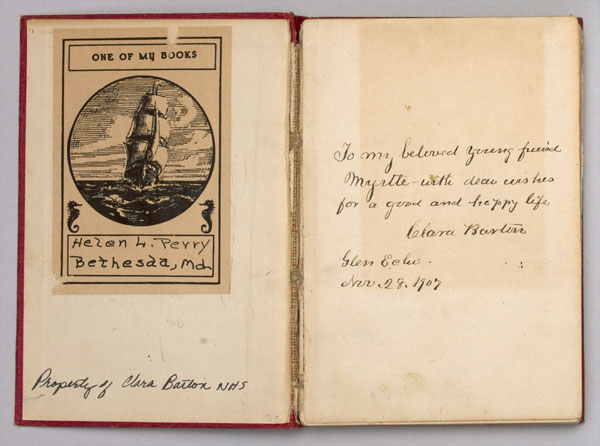 ONE OF MY BOOKS
Helen L. Perry
Bethesda, Md.
Property of Clara Barton NHS
To my beloved young friend
Myrtle - with dear wishes
for a good and happy life
Clara Barton
Glen Echo.
Nov. 28. 1907